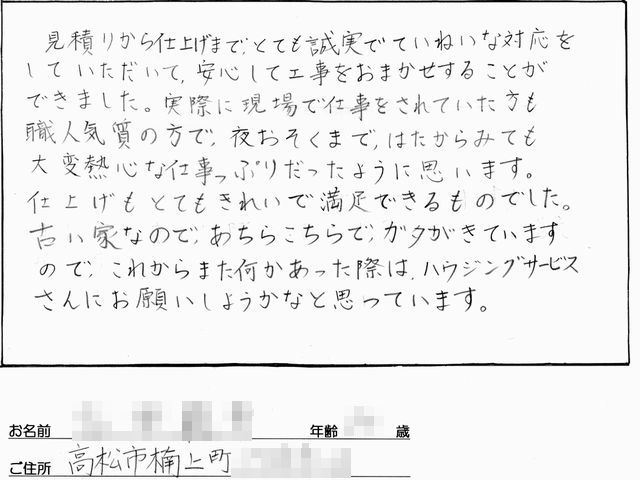 見積りから仕上げまで、とても誠実でていねいな対応を
していただいて、安心して工事をおまかせすることが
できました。実際に現場で仕事をされていた方も
職人気質の方で、夜おそくまで、はたからみても
大変熱心な仕事っぷりだったように思います。
仕上げもとてもきれいで満足できるものでした。
古い家なので、あちらこちらで、ガタがきています
ので、これからまた何かあった際は、ハウジングサービス
さんにお願いしようかなと思っています。
お名前 年齢 歳
ご住所 高松市楠上町